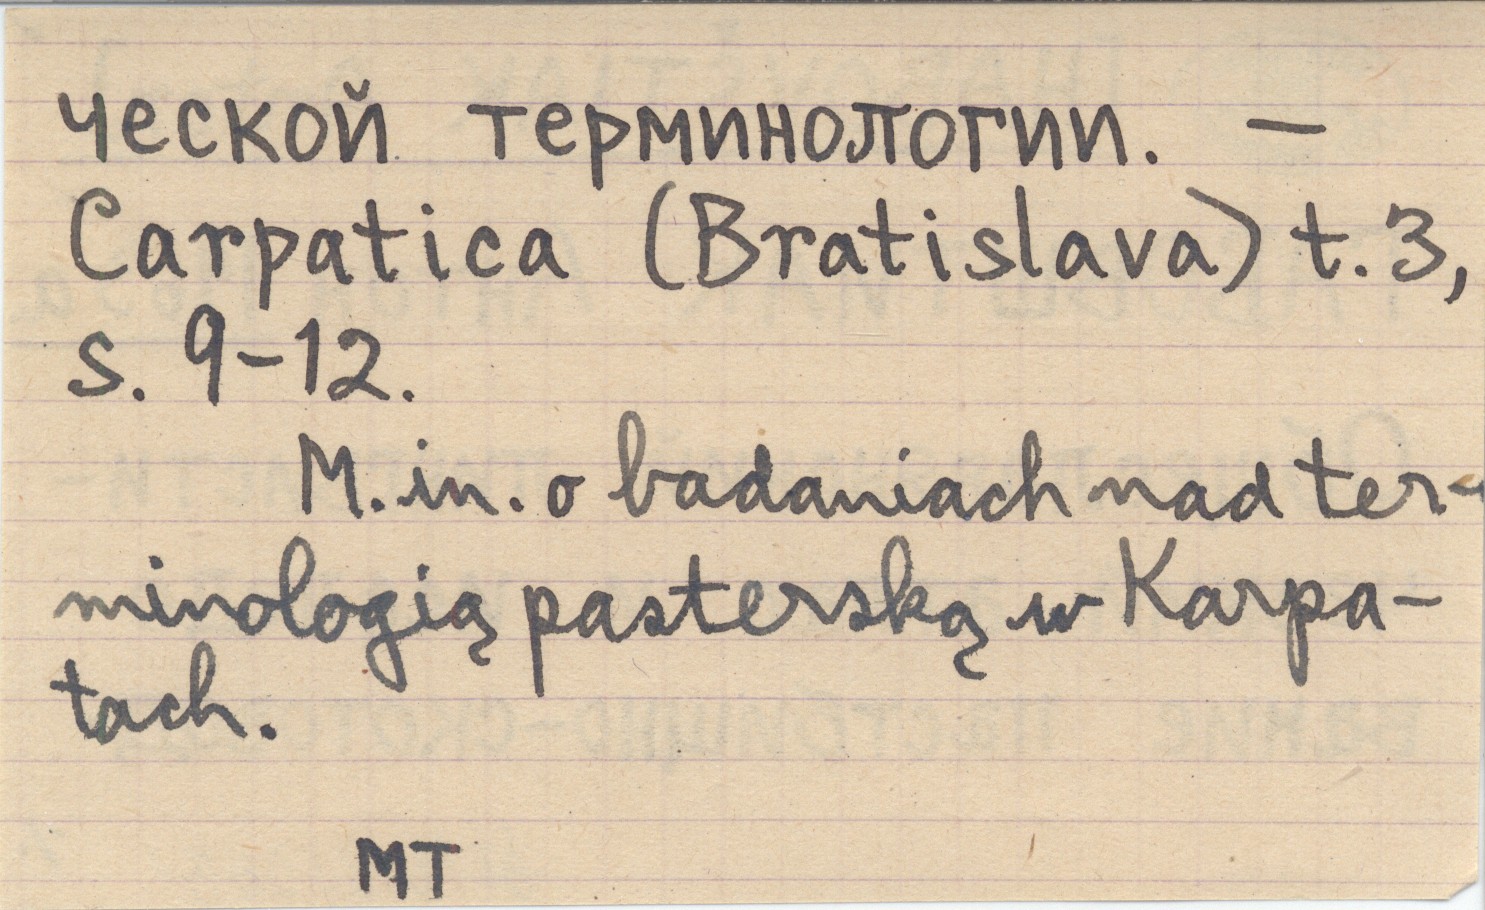 ческой терминологии. —
Carpatica (Bratislava) t. 3,
s. 9-12.
M. in. o badaniach nad ter-
minologią pasterską w Karpa-
tach.
MT